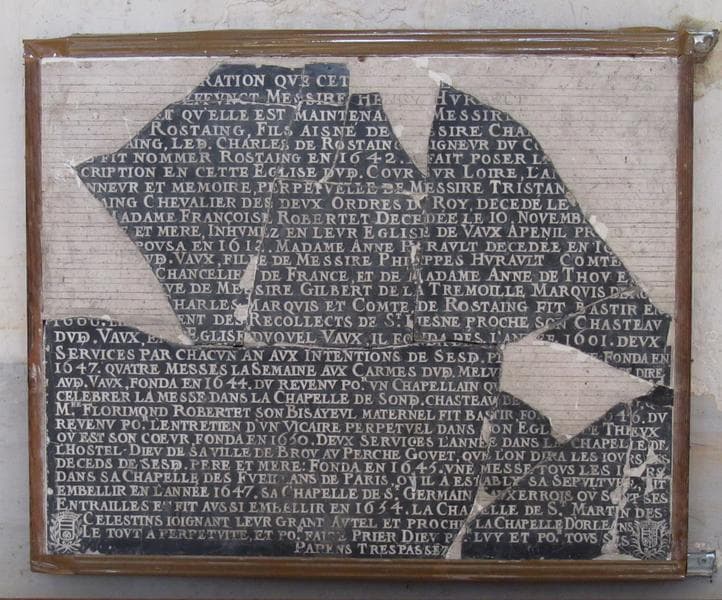 RATION QVE CET
EFFVNCT MESSIRE HE HVR
QV'ELLE EST MAINTENA MESSIRE
ROSTAING, FILS AISNE DE SSIRE CHA
NG, LED. CHARLES DE ROSTAIN IGNEVR DV C
FIT NOMMER ROSTAING EN 1642. FAIT POSER L
CRIPTION EN CETTE EGLISE DVD. COVR VR LOIRE, L'A
NNEVR ET MEMOIRE, PERPETVELLE DE MESSIRE TRISTAN
ING CHEVALIER DES DEVX ORDRES ROY, DECEDE LE
ADAME FRANCOISE ROBERTET DECEDEE LE 10. NOVEMB
ET MERE, INHVMEZ EN LEVR EGLISE DE VAVX APENIL PR
POVSA EN 1612. MADAME ANNE HVRAVLT DECEDEE EN 16
VD. VAVX, FIL DE MESSIRE PHILIPPES HVRAVLT COMTE
CHANCELIER DE FRANCE, ET DE MADAME ANNE DE THOV E
VE DE MESSIRE GILBERT DE LA TREMOILLE MARQVIS
CHARLES MARQVIS ET COMTE DE ROSTAING FIT BASTIR EN
ENT DES RECOLLECTS DE ST. ESNE PROCHE SON CHASTEAV
DVD. VAVX, EGLISE DVQVEL VAVX, IL FONDA DES L'ANNEE 1601. DEVX
SERVICES PAR CHACVN AN AVX INTENTIONS DE SESD. P FONDA EN
1647. QVATRE MESSES LA SEMAINE AVX CARMES DVD. MELV DIRE
AVD. VAVX, FONDA EN 1644. DV REVENV POR VN CHAPELLAIN
CELEBRER LA MESSE DANS LA CHAPELLE DE SOND. CHASTEAV
MRE FLORIMOND ROBERTET SON BISAYEVL MATERNEL FIT BASTIR FO 46. DV
REVENV PO. L'ENTRETIEN D'VN VICAIRE PERPETVEL DANS SON EGL THEVX
OV EST SON COEVR, FONDA EN 1650. DEVX SERVICES L'ANNEE DANS LA CHAPELLE DE
L'HOSTEL-DIEV DE SA VILLE DE BROV AV PERCHE GOVET, QVE L'ON DIRA LES IOVRS
DECEDS DE SESD. PERE ET MERE: FONDA EN 1645. VNE MESSE TOVS LES IOVRS
DANS SA CHAPELLE DES FVEILLANS DE PARIS, OV IL A ESTABLY SA SEPVLTVRE, IT
EMBELLIR EN L'ANNEE 1647. SA CHAPELLE DE ST. GERMAIN XERROIS OV SES
ENTRAILLES FIT AVSSI EMBELLIR EN 1654. LA CHAPELLE DE ST. MARTIN DES
CELESTINS IOIGNANT LEVR GRANT AVTEL ET PROCHE LA CHAPELLE DORLEANS
LE TOVT A PERPETVITE, ET PO. FAIRE PRIER DIEV P LVY ET PO. TOVS SES
PARENS TRESPASSEZ